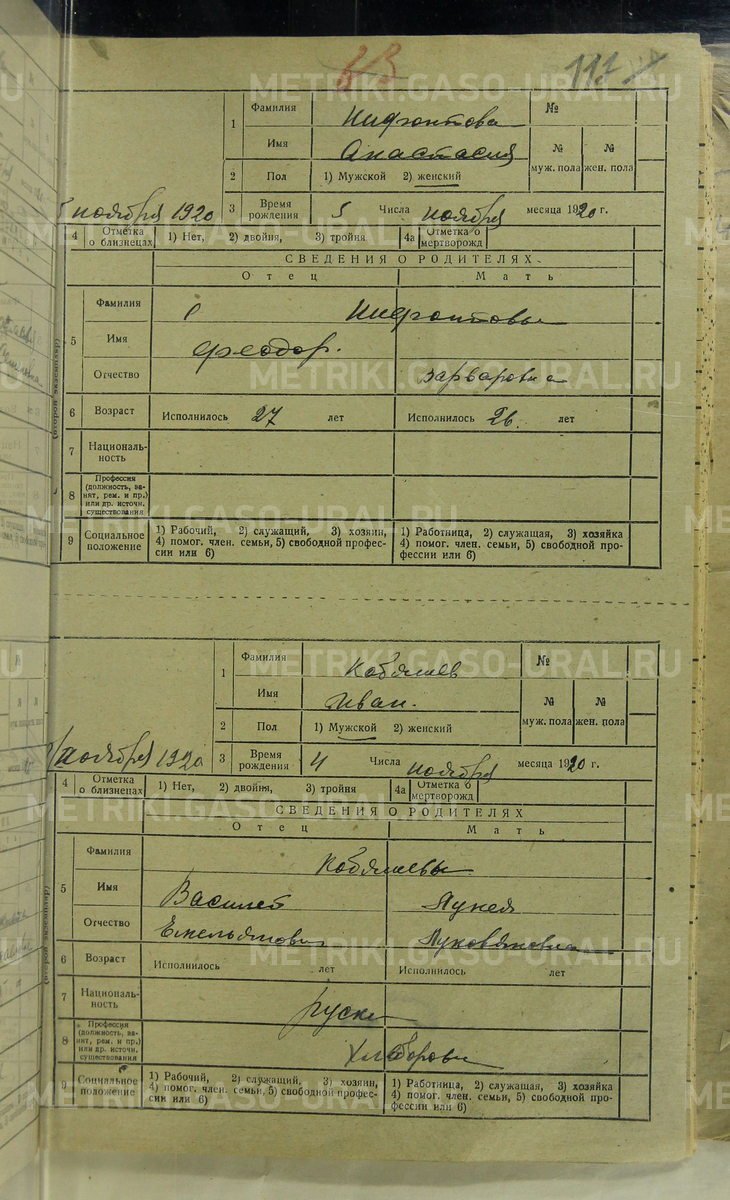 63 111
1 Фамилия Нифонтова №
Имя Анастасия № муж. пола № жен. пола
2 Пол 1) Мужской 2) женский
ноября 1920 3 Время рождения 5 Числа ноября месяца 1920 г.
4 Отметка о близнецах 1) Нет, 2) двойня, 3) тройня 4а Отметка о мертворожд
СВЕДЕНИЯ О РОДИТЕЛЯХ
Отец Мать
5 Фамилия Нифонтовы
Имя Феодор.
Отчество
6 Возраст Исполнилось 27 лет Исполнилось 26. лет
7 Националь-
ность
8 Профессия
(должность, за-
нят, рем. и пр.)
или др. источн.
существования
9 Социальное положение 1) Рабочий, 2) служащий, 3) хозяин, 1) Работница, 2) служащая, 3) хозяйка
4) помог. член. семьи, 5) свободной профес- 4) помог. член. семьи, 5) свободной про-
сии или 6) фессии или 6)
1 Фамилия Кобяшев №
Имя Иван. № муж. пола № жен. пола
2 Пол 1) Мужской 2) женский
ноября 1920 3 Время рождения 4 Числа ноября месяца 1920 г.
4 Отметка о близнецах 1) Нет, 2) двойня, 3) тройня 4а Отметка о мертворожд
СВЕДЕНИЯ О РОДИТЕЛЯХ
Отец Мать
5 Фамилия Кобяшевы
Имя Василий Лукея
Отчество Емельянович Луковяновна
6 Возраст Исполнилось лет Исполнилось лет
7 Националь-
ность руские
8 Профессия
(должность, за-
нят, рем. и пр.)
или др. источн.
существования Хлеборобы
9 Социальное положение 1) Рабочий, 2) служащий, 3) хозяин, 1) Работница, 2) служащая, 3) хозяйка
4) помог. член. семьи, 5) свободной профес- 4) помог. член. семьи, 5) свободной про-
сии или 6) фессии или 6)
METRIKI.GASO-URAL.RU